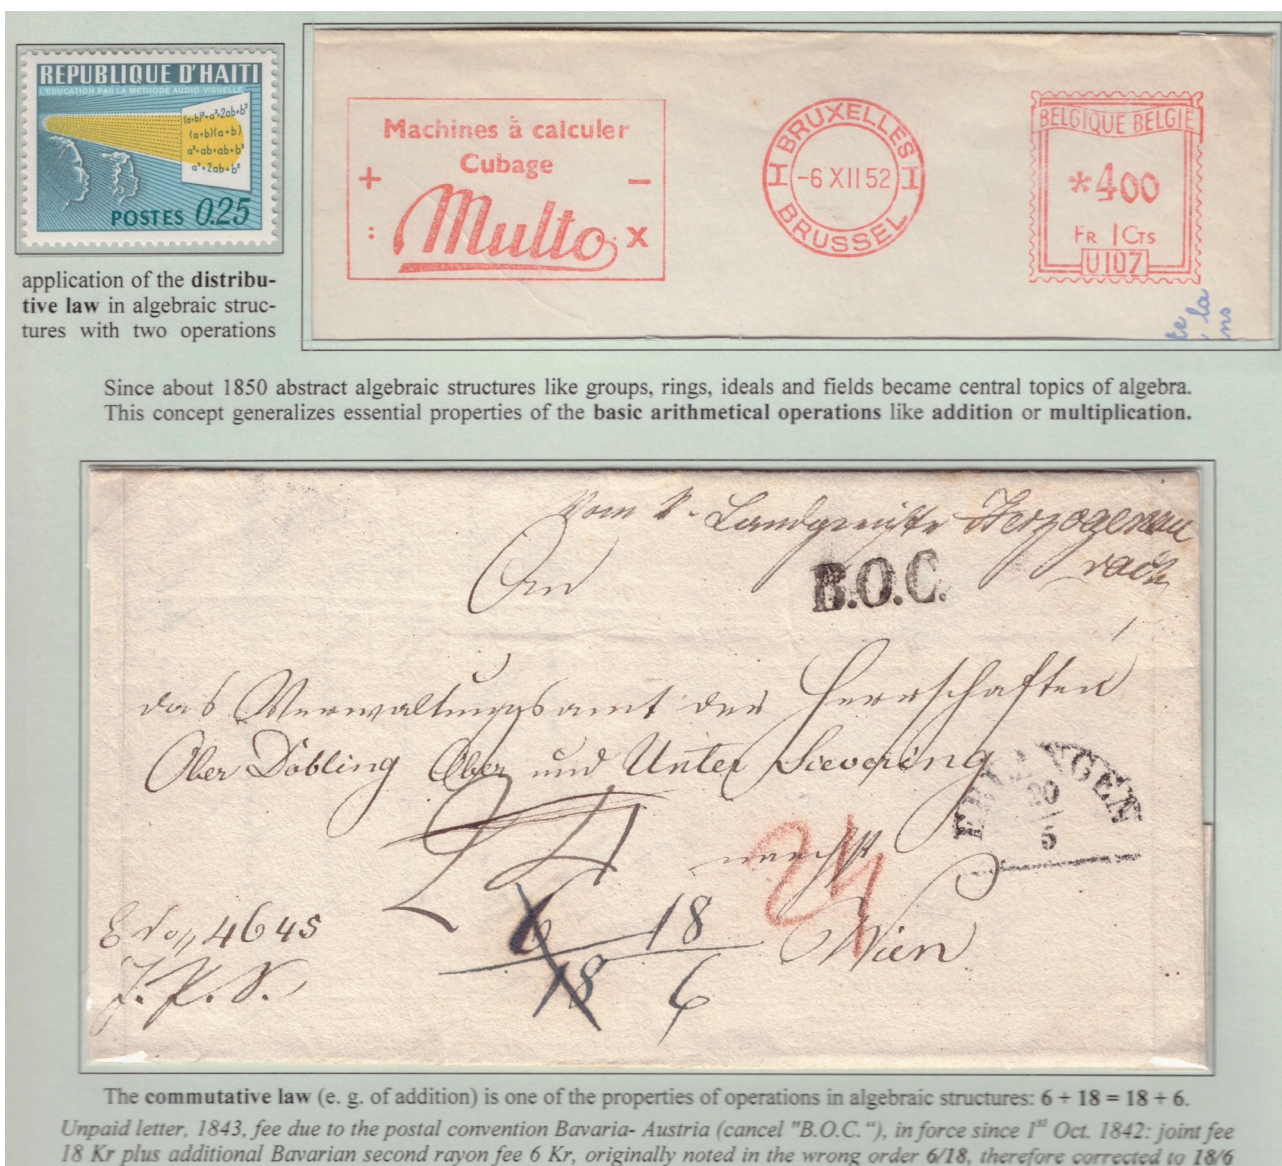 REPUBLIQUE D'HAITI
L'EDUCATION PAR LA METHODE AUDIO-VISUELLE
(a+b)²=a²+2ab+b²
(a+b)(a+b)
a²+ab+ab+b²
a²+2ab+b²
POSTES 0.25
application of the distribu-
tive law in algebraic struc-
tures with two operations
Machines à calculer
Cubage
+ −
: Multo x
BRUXELLES
-6 XII 52
BRUSSEL
BELGIQUE BELGIË
*400
FR CTS
U107
te la
ns
Since about 1850 abstract algebraic structures like groups, rings, ideals and fields became central topics of algebra.
This concept generalizes essential properties of the basic arithmetical operations like addition or multiplication.
Vom K. Landgerichte Herzogenau
rach
An
B.O.C.
das Verwaltungsamt der Herrschaften
Ober Döbling Ober und Unter Sievering
ERLANGEN
20
5
24
24
Wien
4645
6 18
18 6
The commutative law (e. g. of addition) is one of the properties of operations in algebraic structures: 6 + 18 = 18 + 6.
Unpaid letter, 1843, fee due to the postal convention Bavaria- Austria (cancel "B.O.C."), in force since 1st Oct. 1842: joint fee
18 Kr plus additional Bavarian second rayon fee 6 Kr, originally noted in the wrong order 6/18, therefore corrected to 18/6